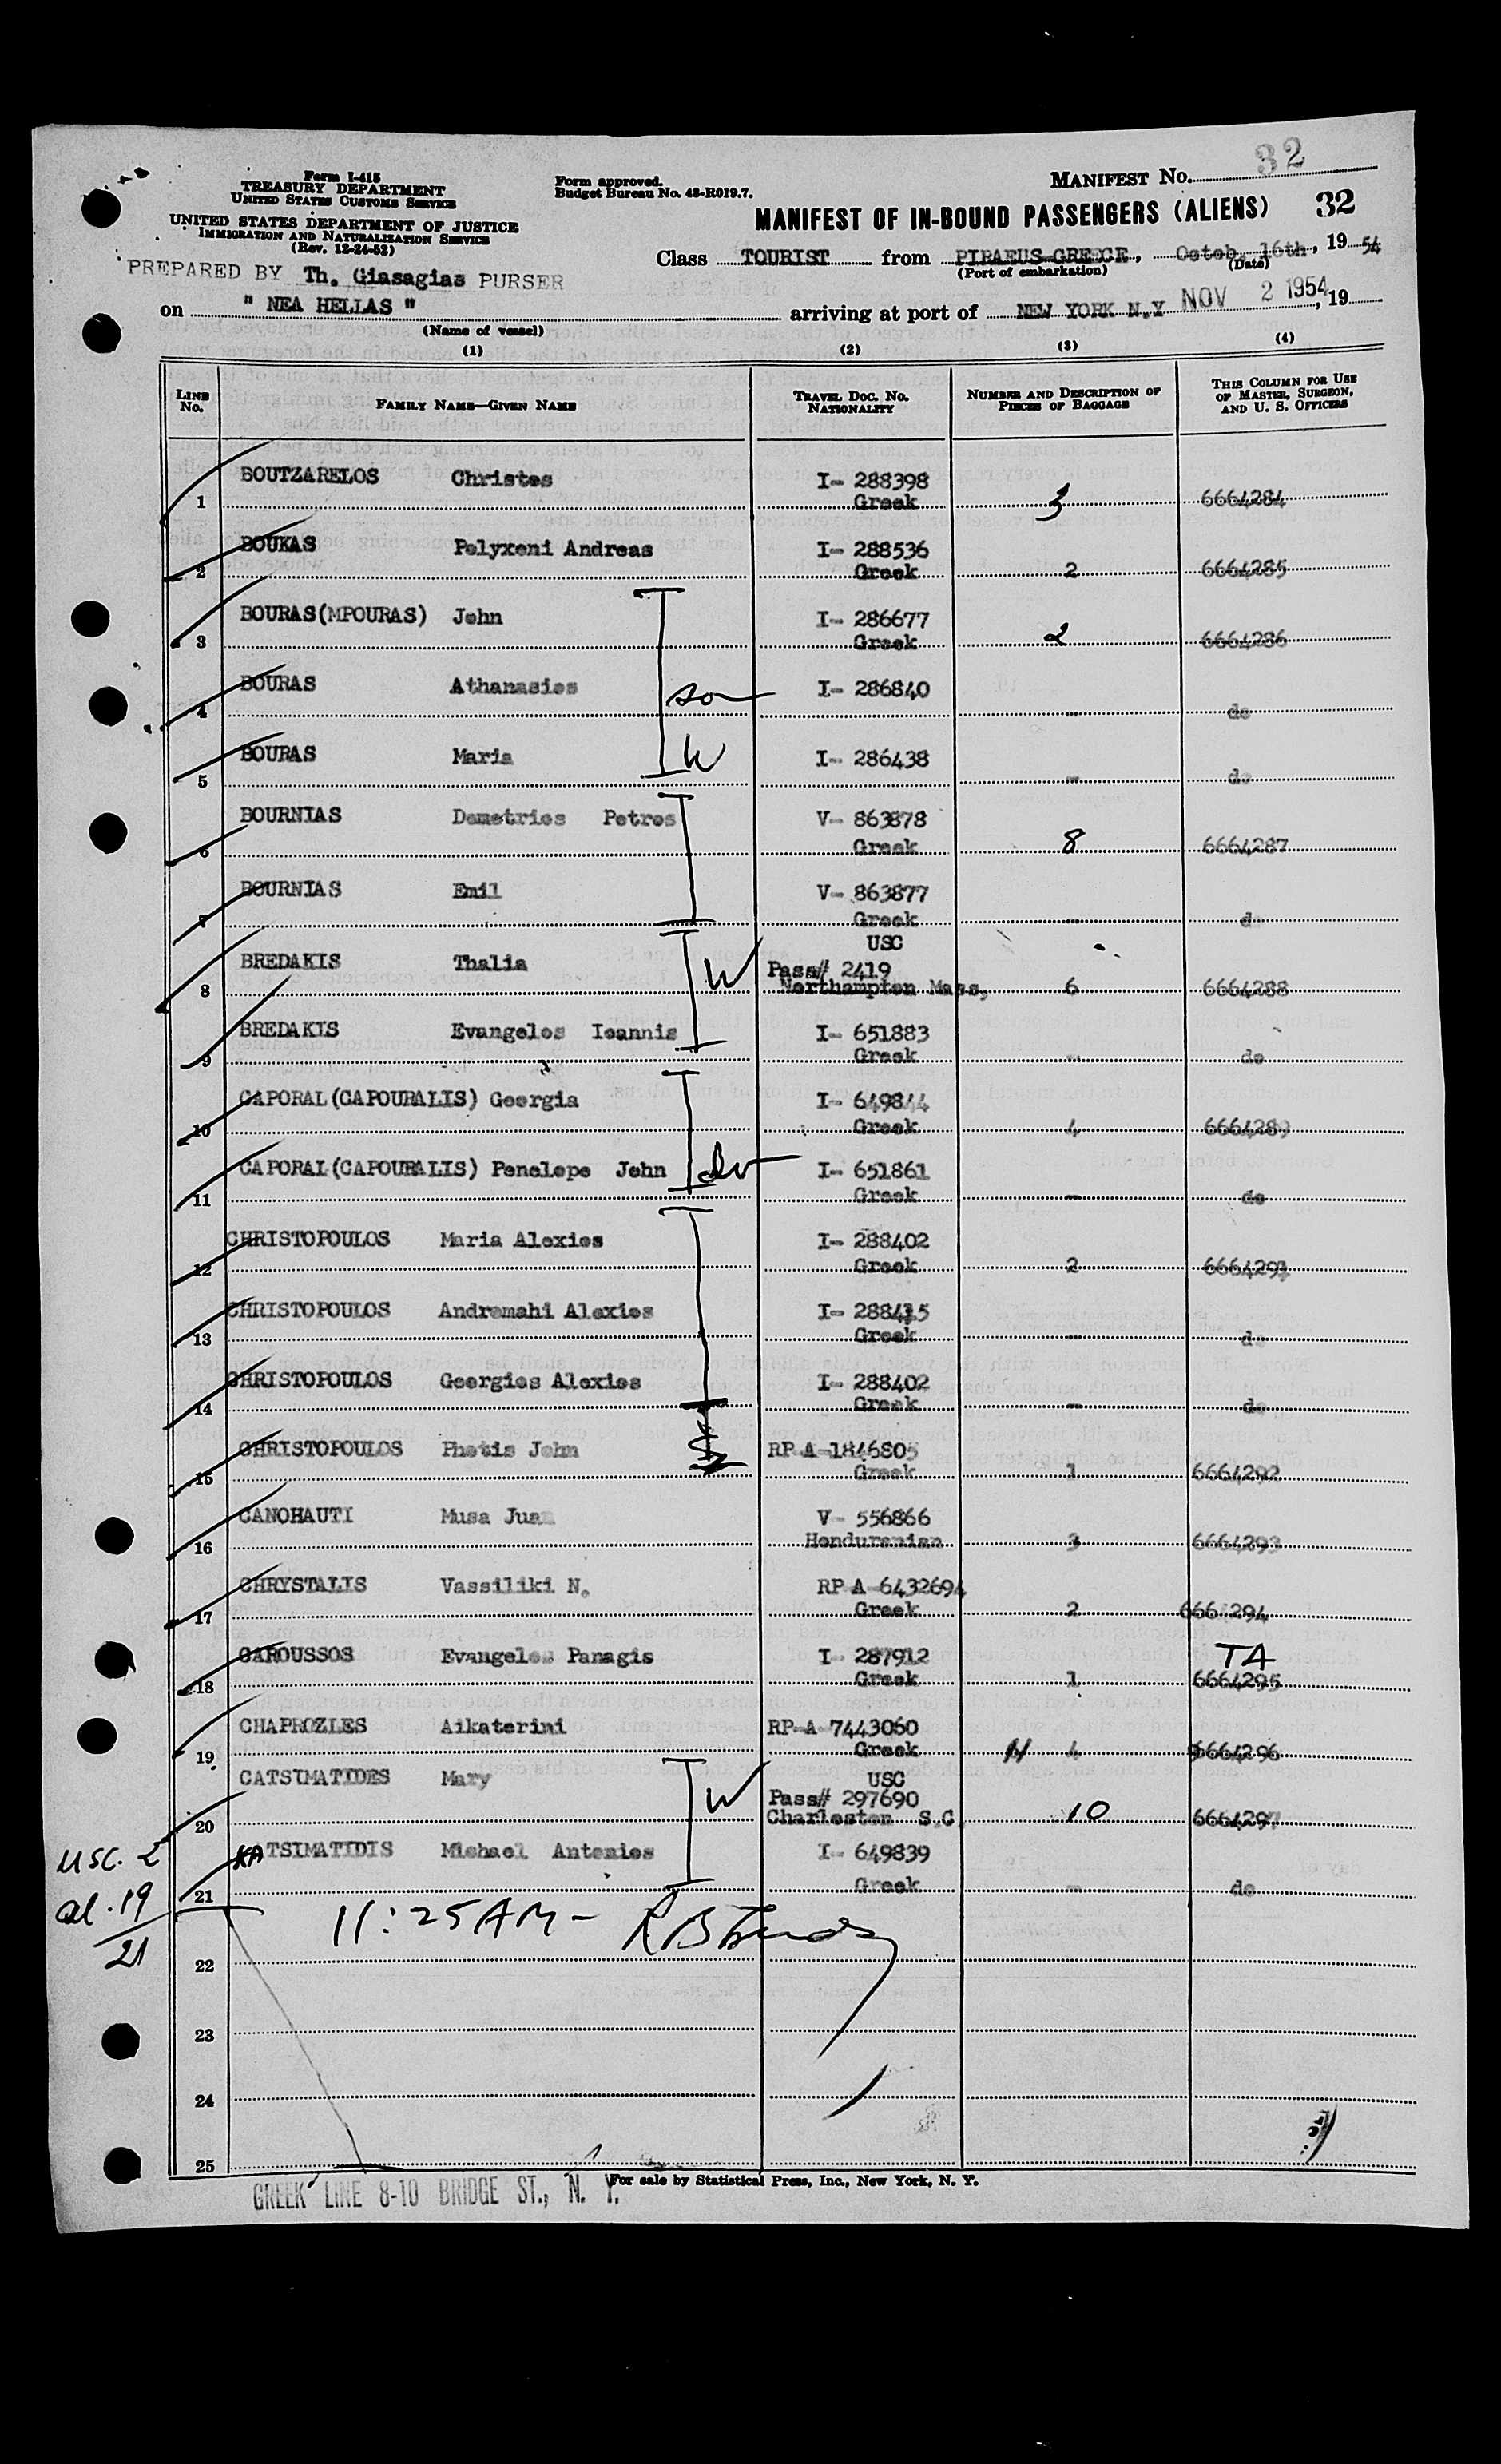 32
Form I-418
TREASURY DEPARTMENT
UNITED STATES CUSTOMS SERVICE
Form approved.
Budget Bureau No. 43-R019.7.
MANIFEST No.
UNITED STATES DEPARTMENT OF JUSTICE
IMMIGRATION AND NATURALIZATION SERVICE
(Rev. 12-24-52)
MANIFEST OF IN-BOUND PASSENGERS (ALIENS) 32
PREPARED BY Th. Giasagias PURSER
Class TOURIST from PIRAEUS GREECE, Octob. 16th, 19 54
(Port of embarkation) (Date)
on " NEA HELLAS " arriving at port of NEW YORK N.Y NOV 2 1954, 19
(Name of vessel)
(1) (2) (3) (4)
LINE No. FAMILY NAME—GIVEN NAME TRAVEL DOC. NO. NATIONALITY NUMBER AND DESCRIPTION OF PIECES OF BAGGAGE THIS COLUMN FOR USE OF MASTER, SURGEON, AND U. S. OFFICERS
BOUTZARELOS Christos I- 288398
1 Greek 3 6664284
BOUKAS Polyxeni Andreas I- 288536
2 Greek 2 6664285
BOURAS(MPOURAS) John I- 286677
3 Greek 2 6664286
BOURAS Athanasios son I- 286840
4 - do
BOURAS Maria W I- 286438
5 - do
BOURNIAS Demetrios Petros V- 863878
6 Greek 8 6664287
BOURNIAS Emil V- 863877
7 Greek - d
USC
BREDAKIS Thalia W Pass# 2419
8 Northampton Mass, 6 6664288
BREDAKIS Evangelos Ioannis I- 651883
9 Greek - do
CAPORAL(CAPOURALIS) Georgia I- 649844
10 Greek 4 6664289
CAPORAL(CAPOURALIS) Penelope John I- 651861
11 Greek - do
CHRISTOPOULOS Maria Alexios I- 288402
12 Greek 2
CHRISTOPOULOS Andromahi Alexios
13 Greek - do
CHRISTOPOULOS Georgios Alexios I- 288402
14 Greek - do
CHRISTOPOULOS Photis John RP A-1846805
15 Greek 1 6664292
CANOHAUTI Musa Juan V- 556866
16 Honduranian 3 6664293
CHRYSTALIS Vassiliki N. RP A-6432694
17 Greek 2 6664294
CAROUSSOS Evangelos Panagis I- 287912 TA
18 Greek 1 6664295
CHAPROZLES Aikaterini RP-A-7443060
19 Greek 4 6664296
CATSIMATIDES Mary W USC
Pass# 297690
20 Charleston S.C 10 6664297
KATSIMATIDIS Michael Antonios I- 649839
21 Greek - do
usc. 2
al. 19
21
11:25AM -
22
23
24
25
For sale by Statistical Press, Inc., New York, N. Y.
GREEK LINE 8-10 BRIDGE ST., N. Y.